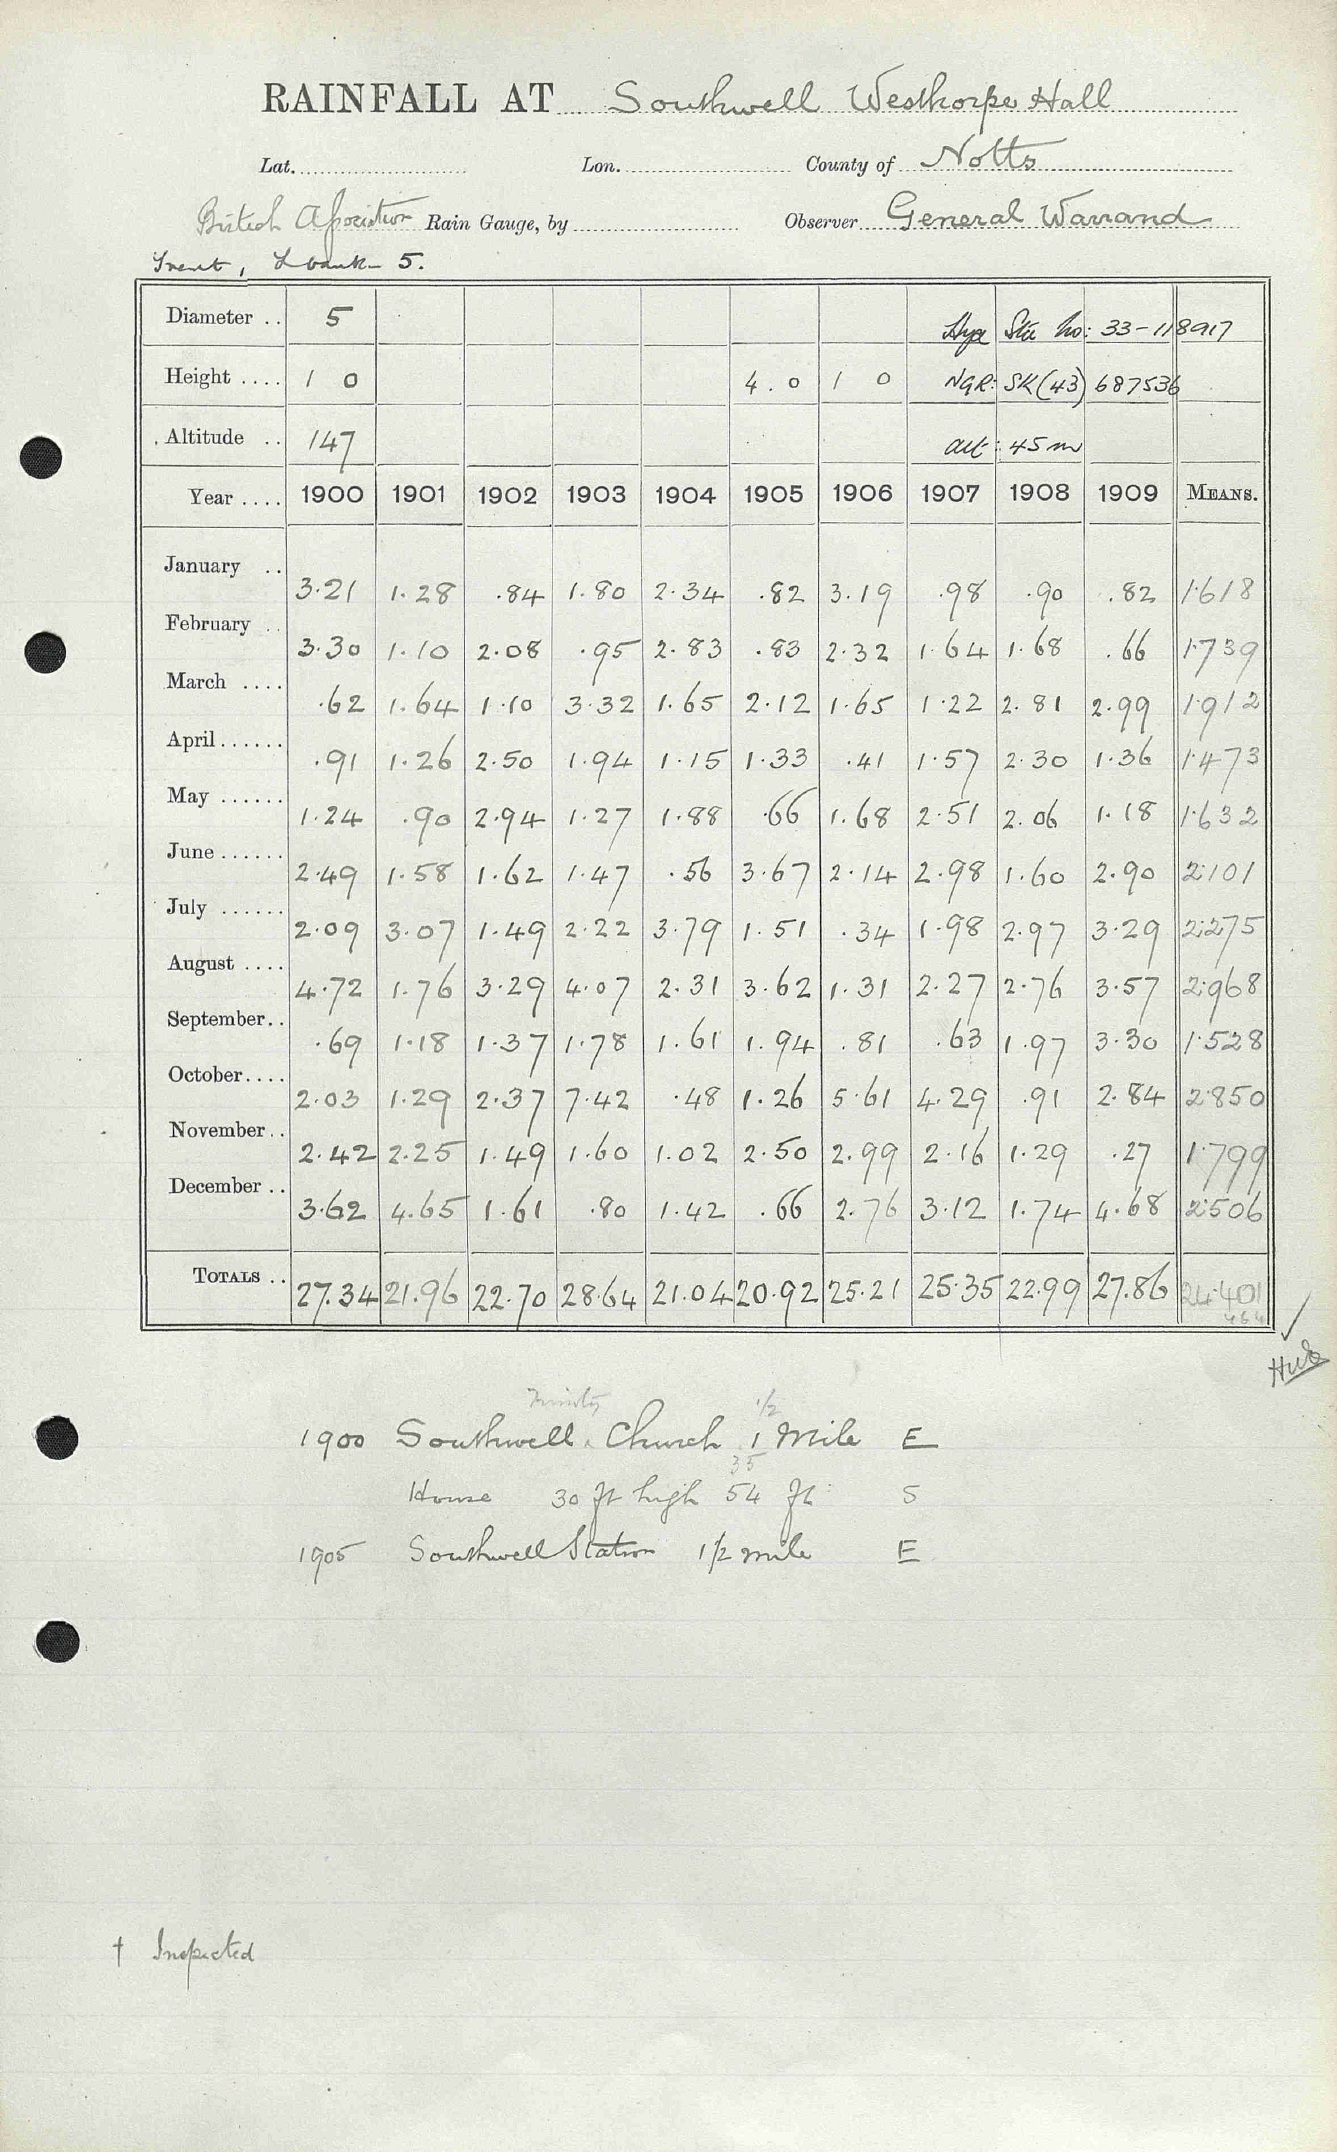 RAINFALL AT Southwell Westhorpe Hall
Lat. Lon. County of Notts
British Association Rain Gauge, by Observer General Warrand
Trent, L bank 5.
Diameter .. 5 Hyd Sta No: 33-118917
Height .... 1 0 4.0 1 0 NGR: SK(43) 687536
Altitude .. 147 alt: 45m
Year .... 1900 1901 1902 1903 1904 1905 1906 1907 1908 1909 MEANS.
January .. 3.21 1.28 .84 1.80 2.34 .82 3.19 .98 .90 .82 1.618
February .. 3.30 1.10 2.08 .95 2.83 .83 2.32 1.64 1.68 .66 1.739
March .... .62 1.64 1.10 3.32 1.65 2.12 1.65 1.22 2.81 2.99 1.912
April ...... .91 1.26 2.50 1.94 1.15 1.33 .41 1.57 2.30 1.36 1.473
May ...... 1.24 .90 2.94 1.27 1.88 .66 1.68 2.51 2.06 1.18 1.632
June ...... 2.49 1.58 1.62 1.47 .56 3.67 2.14 2.98 1.60 2.90 2.101
July ...... 2.09 3.07 1.49 2.22 3.79 1.51 .34 1.98 2.97 3.29 2.275
August .... 4.72 1.76 3.29 4.07 2.31 3.62 1.31 2.27 2.76 3.57 2.968
September.. .69 1.18 1.37 1.78 1.61 1.94 .81 .63 1.97 3.30 1.528
October.... 2.03 1.29 2.37 7.42 .48 1.26 5.61 4.29 .91 2.84 2.850
November.. 2.42 2.25 1.49 1.60 1.02 2.50 2.99 2.16 1.29 .27 1.799
December .. 3.62 4.65 1.61 .80 1.42 .66 2.76 3.12 1.74 4.68 2.506
TOTALS .. 27.34 21.96 22.70 28.64 21.04 20.92 25.21 25.35 22.99 27.86 24.401
Trinity 1/2
1900 Southwell Church 1 Mile E
35
House 30 ft high 54 ft S
1905 Southwell Station 1/2 mile E
† Inspected